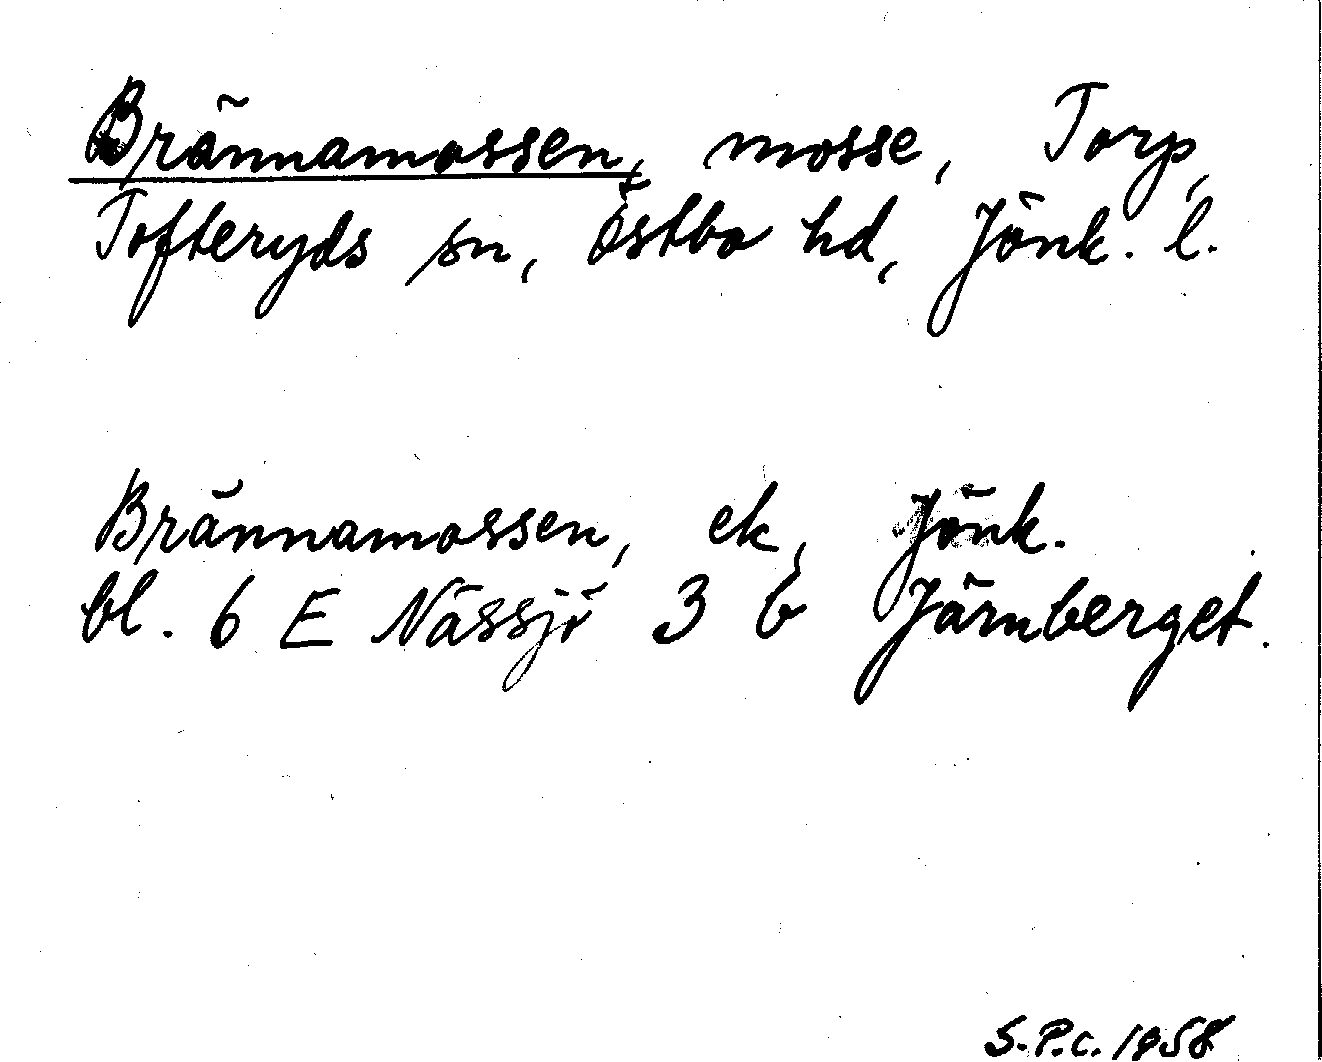 Brännamossen, mosse, Torp,
Tofteryds sn, Östbo hd, Jönk. l.
Brännamossen, ek, Jönk.
bl. 6 E Nässjö 3 b Järnberget.
S.P.c. 1958